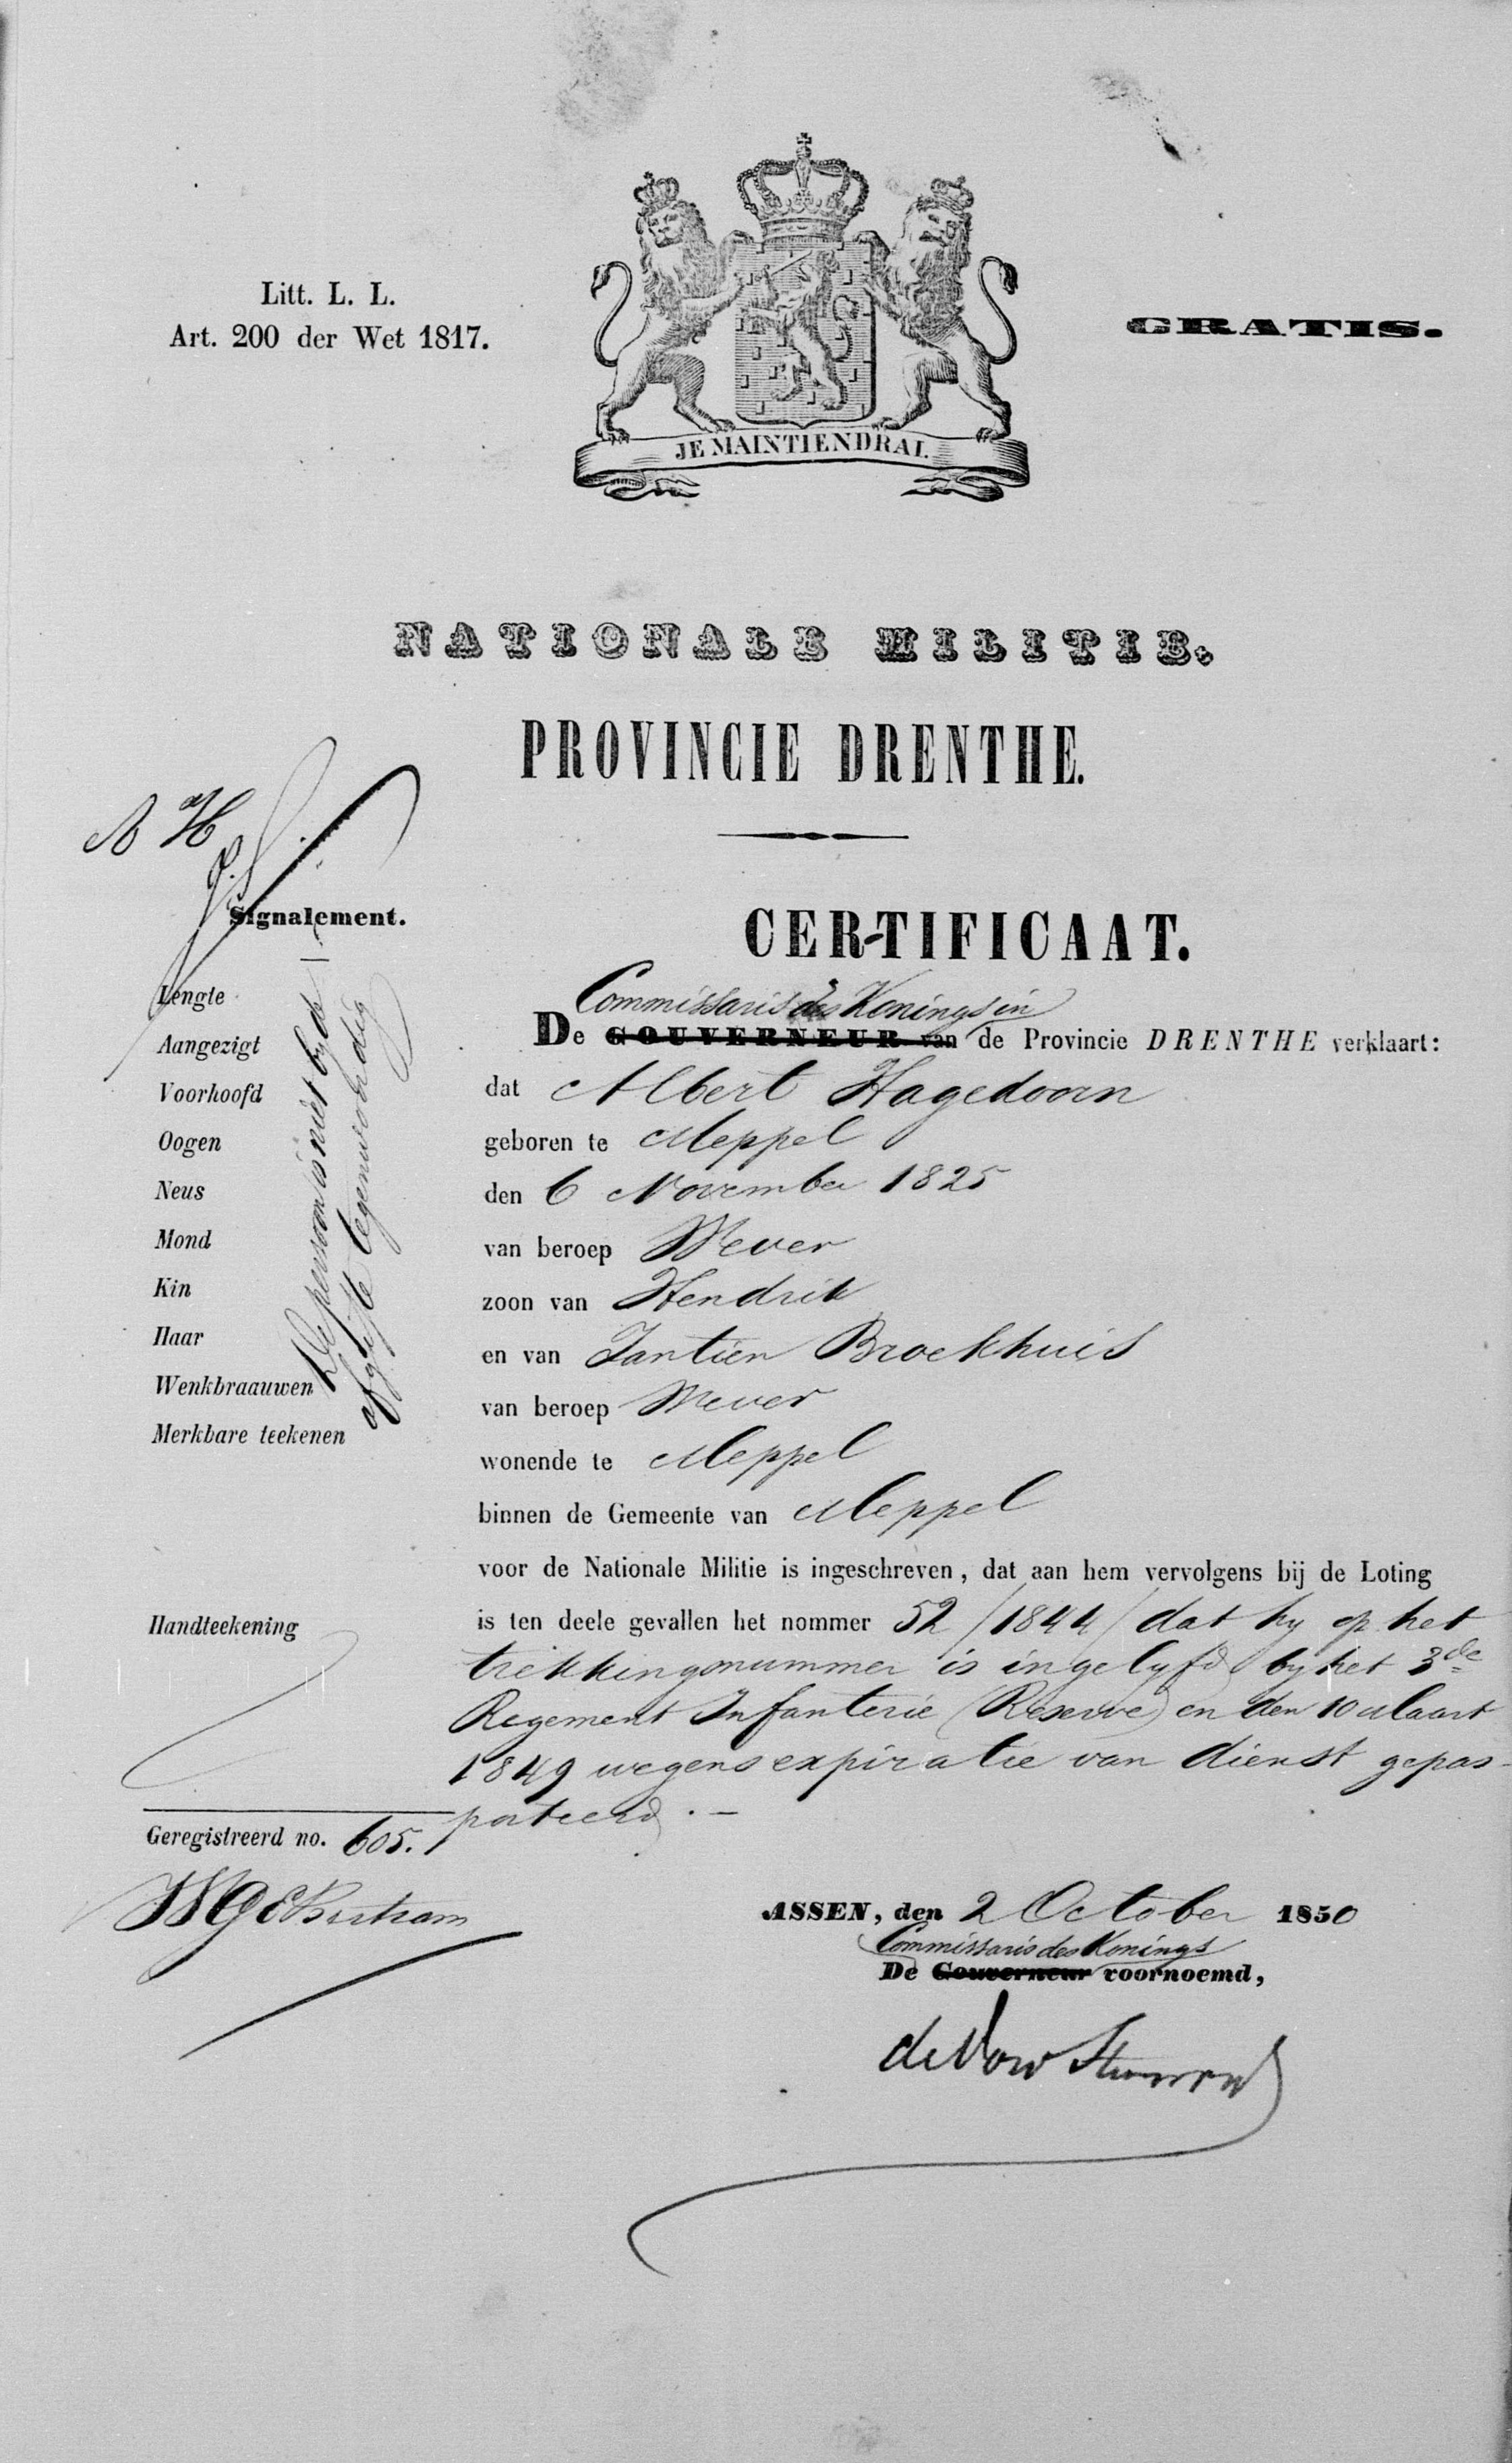 Litt. L. L.
Art. 200 der Wet 1817.
GRATIS.
JE MAINTIENDRAI.
NATIONALE MILITIE.
PROVINCIE DRENTHE.
A H
Signalement.
Lengte
Aangezigt
Voorhoofd
Oogen
Neus
Mond
Kin
Haar
Wenkbraauwen
Merkbare teekenen
De persoon is niet by de
afgifte tegenwoordig
Handteekening
Geregistreerd no. 605.
WGEBertram
CERTIFICAAT.
Commissaris des Konings in
De GOUVERNEUR van de Provincie DRENTHE verklaart:
dat Albert Hagedoorn
geboren te Meppel
den 6 November 1825
van beroep Wever
zoon van Hendrik
en van Jantien Broekhuis
van beroep Wever
wonende te Meppel
binnen de Gemeente van Meppel
voor de Nationale Militie is ingeschreven, dat aan hem vervolgens bij de Loting
is ten deele gevallen het nommer 52 /1844/ dat hy op het
trekkingsnummer is ingelyfd by het 3de
Regement Infanterie (Reserve) en den 10 Maart
1849 wegens expiratie van dienst gepas-
porteerd. —
ASSEN, den 2 October 1850
Commissaris des Konings
De Gouverneur voornoemd,